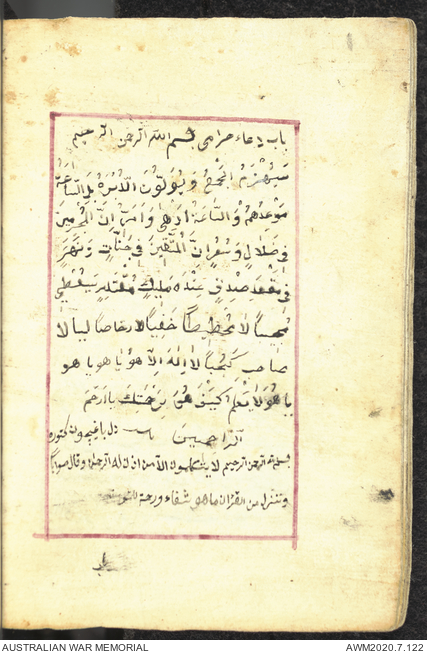 باب دعاء حرامى بسم الله الرحمن الرحيم
سَيُهْزَمُ الْجَمْعُ وَيُوَلُّونَ الدُّبُرَ بَلِ السَّاعَةُ
مَوْعِدُهُمْ وَالسَّاعَةُ اَدْهٰى وَاَمَرُّ اِنَّ الْمُجْرِمِينَ
فِى ضَلَالٍ وَسُعُرٍ اِنَّ الْمُتَّقِينَ فِى جَنَّاتٍ وَنَهَرٍ
فِى مَقْعَدِ صِدْقٍ عِنْدَ مَلِيكٍ مُقْتَدِرٍ
لا
لا اله الا هو يا هو يا هو
يا هو لا يعلم كيف هو برحمتك يا ارحم
الراحمين
بسم الله الرحمن الرحيم لا يتكلمون الا من اذن له الرحمن وقال صوابا
وننزل من القران ما هو شفاء ورحمة للمؤمنين
AUSTRALIAN WAR MEMORIAL
AWM2020.7.122